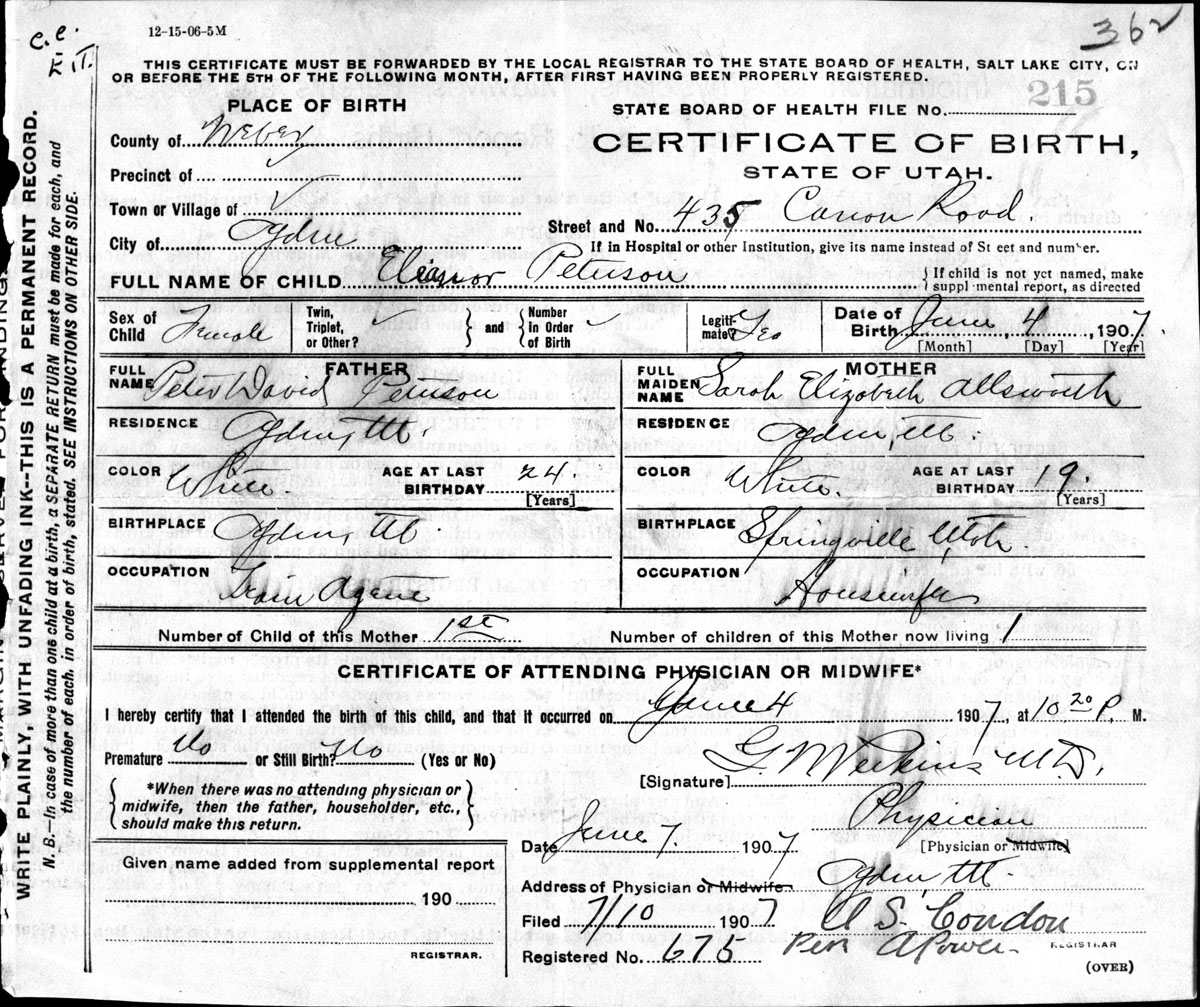 12-15-06-5M
c.c.
362
THIS CERTIFICATE MUST BE FORWARDED BY THE LOCAL REGISTRAR TO THE STATE BOARD OF HEALTH, SALT LAKE CITY, ON
OR BEFORE THE 5TH OF THE FOLLOWING MONTH, AFTER FIRST HAVING BEEN PROPERLY REGISTERED.
215
PLACE OF BIRTH
STATE BOARD OF HEALTH FILE No.
County of Weber
CERTIFICATE OF BIRTH,
Precinct of
STATE OF UTAH.
Town or Village of
Street and No. 435 Canon Road.
City of Ogden
If in Hospital or other Institution, give its name instead of St eet and number.
FULL NAME OF CHILD Eleanor Peterson
If child is not yet named, make
suppl mental report, as directed
Sex of Child Female
Twin, Triplet, or Other?
and
Number in Order of Birth
Legiti- mate? Yes
Date of Birth June 4, 1907
[Month] [Day] [Year]
FATHER
FULL NAME Peter David Peterson
MOTHER
FULL MAIDEN NAME Sarah Elizabeth Allsworth
RESIDENCE Ogden, Ut.
RESIDENCE Ogden, Ut.
COLOR White
AGE AT LAST BIRTHDAY 24
[Years]
COLOR White.
AGE AT LAST BIRTHDAY 19.
[Years]
BIRTHPLACE Ogden, Ut.
BIRTHPLACE Springville Utah.
OCCUPATION Train Agent
OCCUPATION Housewife
Number of Child of this Mother 1st
Number of children of this Mother now living 1
CERTIFICATE OF ATTENDING PHYSICIAN OR MIDWIFE*
I hereby certify that I attended the birth of this child, and that it occurred on June 4 1907, at 10 20 P. M.
Premature No or Still Birth? No (Yes or No)
[Signature] G. W. Perkins M.D.
*When there was no attending physician or
midwife, then the father, householder, etc.,
should make this return.
Physician
[Physician or Midwife]
Date June 7. 1907
Given name added from supplemental report
190
REGISTRAR.
Address of Physician or Midwife. Ogden, Ut.
Filed 7/10 1907
A S. Condon
Registered No. 675
Per A Power
REGISTRAR
(OVER)
WRITE PLAINLY, WITH UNFADING INK--THIS IS A PERMANENT RECORD.
N. B.—In case of more than one child at a birth, a SEPARATE RETURN must be made for each, and
the number of each, in order of birth, stated. SEE INSTRUCTIONS ON OTHER SIDE.